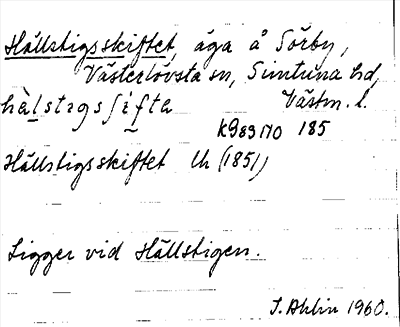 Hällstigsskiftet, äga å Sörby,
Västerlövsta sn, Simtuna hd,
hä̀lstəgsʃìfta Västm. l.
K983170 185
Hällstigsskiftet Lh (1851)
Ligger vid Hällstigen.
I. Ahlin 1960.